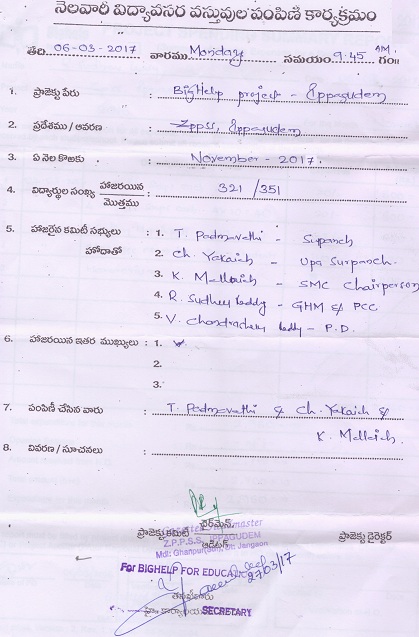 నెలవారీ విద్యావసర వస్తువుల పంపిణీ కార్యక్రమం
తేది 06-03-2017 వారము Monday సమయం 9:45 AM గం॥
1. ప్రాజెక్టు పేరు : BigHelp project - Ippagudem
2. ప్రదేశము / ఆవరణ : ZPPSS, Ippagudem
3. ఏ నెల కొఱకు : November - 2017.
4. విద్యార్థుల సంఖ్య హాజరయిన / మొత్తము : 321 / 351
5. హాజరైన కమిటీ సభ్యులు : 1. T. Padmavathi - Supanch
హోదాతో 2. Ch. Yakaiah - Upa Surpanch.
3. K. Mallaiah - SMC Chairperson
4. R. Sudheer Reddy - GHM & PCC
5. V. Chandrachary Reddy - P.D.
6. హాజరయిన ఇతర ముఖ్యులు : 1.
2.
3.
7. పంపిణీ చేసిన వారు : T. Padmavathi & Ch. Yakaiah &
K. Mallaiah.
8. వివరణ / సూచనలు :
ప్రాజెక్టు కమిటీ ఛైర్మెన్ ప్రాజెక్టు డైరెక్టర్
Z.P.P.S.S. IPPAGUDEM
ఆడిటర్
For BIGHELP FOR EDUCATION
27/03/17
SECRETARY